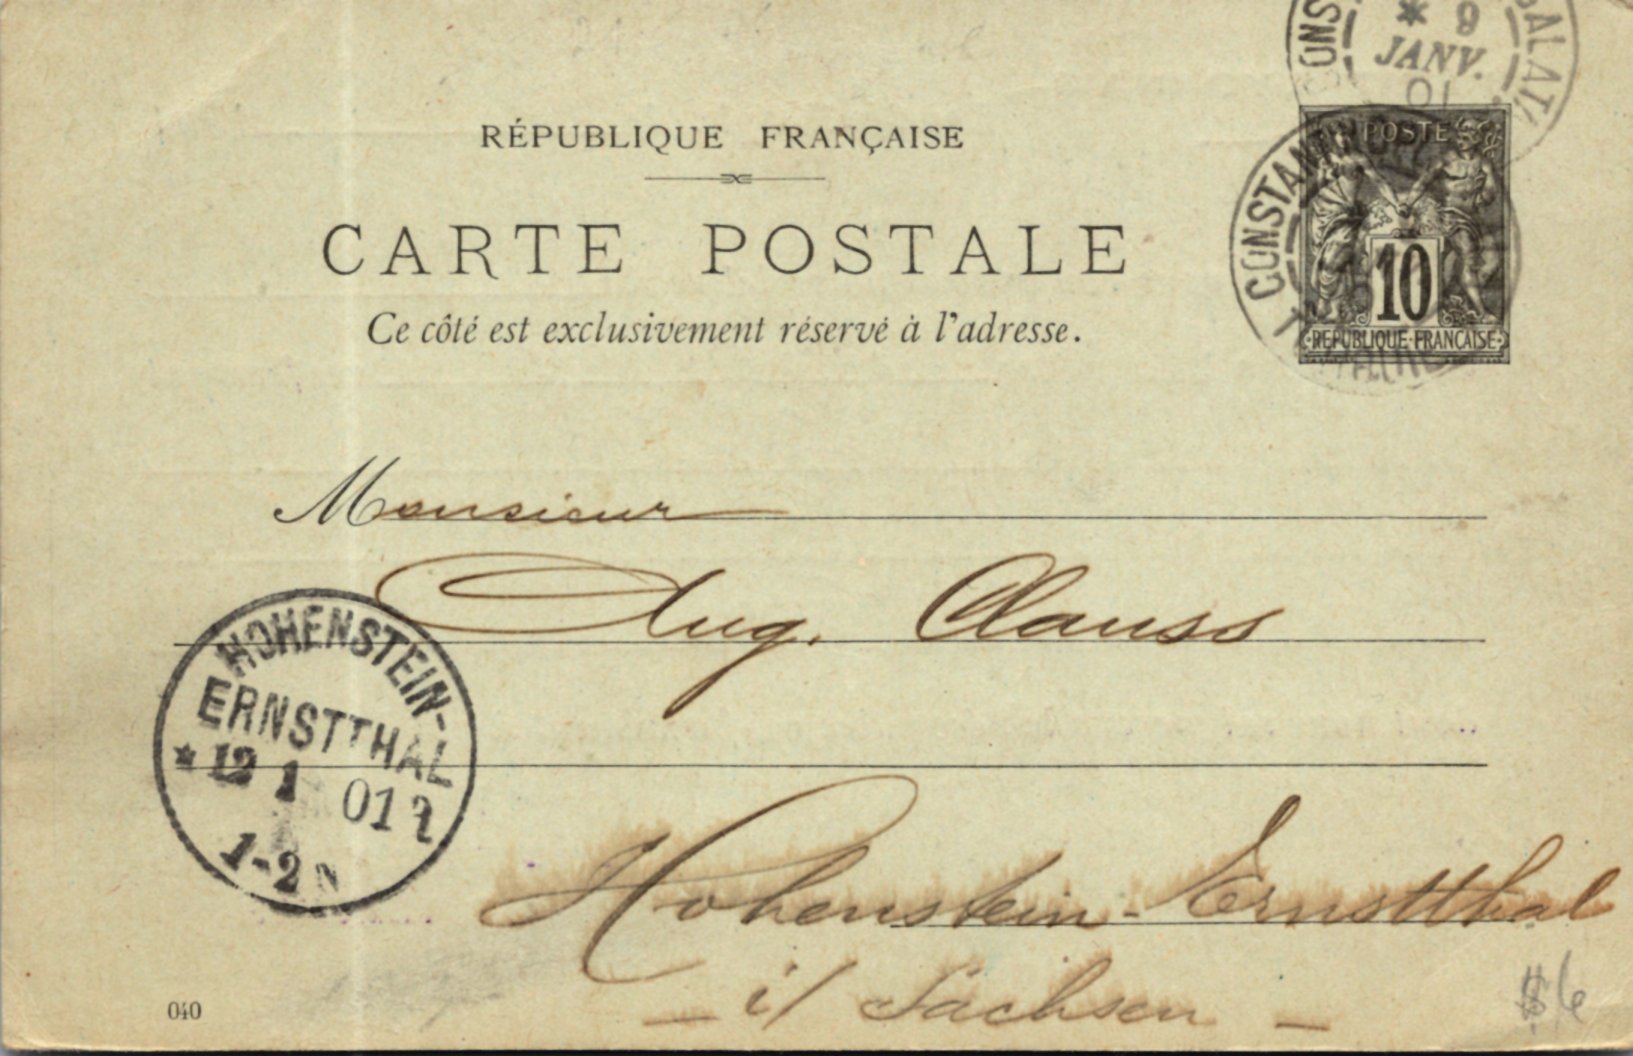 * 9
JANV.
01
RÉPUBLIQUE FRANÇAISE
POSTE
CARTE POSTALE
10
Ce côté est exclusivement réservé à l'adresse.
REPUBLIQUE FRANCAISE
Monsieur
Aug. Clauss
HOHENSTEIN-
ERNSTTHAL
* 12 1 01
1-2
Hohenstein-Ernstthal
i/ Sachsen
040
$6